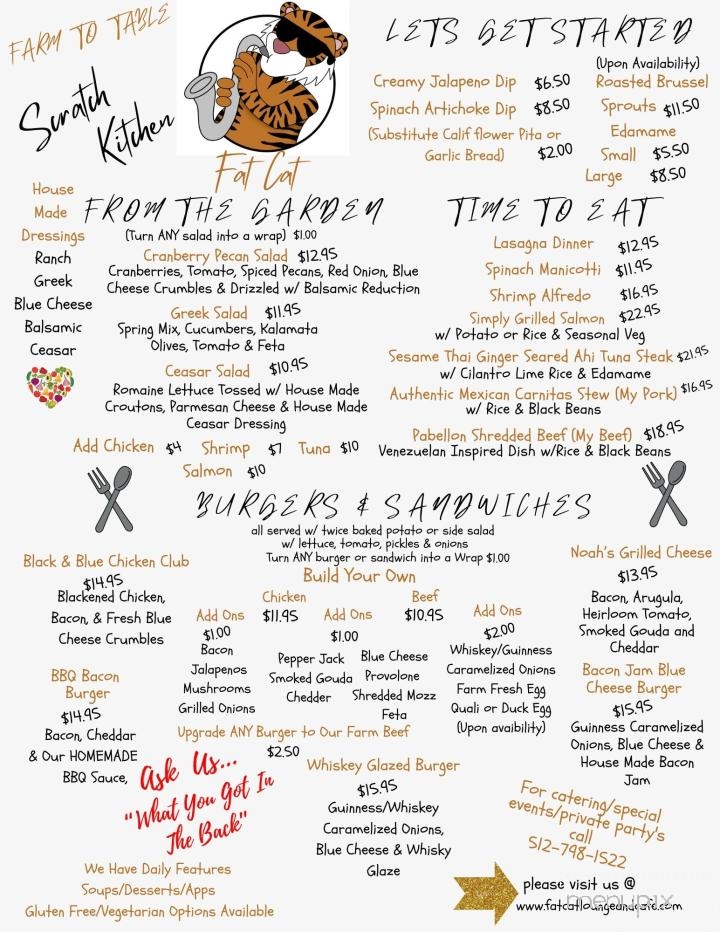 FARM TO TABLE
Scratch
Kitchen
Fat Cat
LETS GET STARTED
(Upon Availability)
Creamy Jalapeno Dip $6.50
Spinach Artichoke Dip $8.50
(Substitute Calif flower Pita or
Garlic Bread) $2.00
Roasted Brussel
Sprouts $11.50
Edamame
Small $5.50
Large $8.50
House
Made
Dressings
Ranch
Greek
Blue Cheese
Balsamic
Ceasar
FROM THE GARDEN
(Turn ANY salad into a wrap) $1.00
Cranberry Pecan Salad $12.95
Cranberries, Tomato, Spiced Pecans, Red Onion, Blue
Cheese Crumbles & Drizzled w/ Balsamic Reduction
Greek Salad $11.95
Spring Mix, Cucumbers, Kalamata
Olives, Tomato & Feta
Ceasar Salad $10.95
Romaine Lettuce Tossed w/ House Made
Croutons, Parmesan Cheese & House Made
Ceasar Dressing
Add Chicken $4 Shrimp $7 Tuna $10
Salmon $10
TIME TO EAT
Lasagna Dinner $12.95
Spinach Manicotti $11.95
Shrimp Alfredo $16.95
Simply Grilled Salmon $22.95
w/ Potato or Rice & Seasonal Veg
Sesame Thai Ginger Seared Ahi Tuna Steak $21.95
w/ Cilantro Lime Rice & Edamame
Authentic Mexican Carnitas Stew (My Pork) $16.95
w/ Rice & Black Beans
Pabellon Shredded Beef (My Beef) $18.95
Venezuelan Inspired Dish w/Rice & Black Beans
BURGERS & SANDWICHES
all served w/ twice baked potato or side salad
w/ lettuce, tomato, pickles & onions
Turn ANY burger or sandwich into a Wrap $1.00
Black & Blue Chicken Club
$14.95
Blackened Chicken,
Bacon, & Fresh Blue
Cheese Crumbles
BBQ Bacon
Burger
$14.95
Bacon, Cheddar
& Our HOMEMADE
BBQ Sauce,
Build Your Own
Chicken
$11.95
Beef
$10.95
Add Ons
$1.00
Bacon
Jalapenos
Mushrooms
Grilled Onions
Add Ons
$1.00
Pepper Jack
Smoked Gouda
Chedder
Blue Cheese
Provolone
Shredded Mozz
Feta
Add Ons
$2.00
Whiskey/Guinness
Caramelized Onions
Farm Fresh Egg
Quali or Duck Egg
(Upon avaibility)
Upgrade ANY Burger to Our Farm Beef
$2.50
Whiskey Glazed Burger
$15.95
Guinness/Whiskey
Caramelized Onions,
Blue Cheese & Whisky
Glaze
Noah's Grilled Cheese
$13.95
Bacon, Arugula,
Heirloom Tomato,
Smoked Gouda and
Cheddar
Bacon Jam Blue
Cheese Burger
$15.95
Guinness Caramelized
Onions, Blue Cheese &
House Made Bacon
Jam
Ask Us...
"What You Got In
The Back"
We Have Daily Features
Soups/Desserts/Apps
Gluten Free/Vegetarian Options Available
For catering/special
events/private party's
call
512-798-1522
please visit us @
www.fatcatloungeandcafe.com
menupix